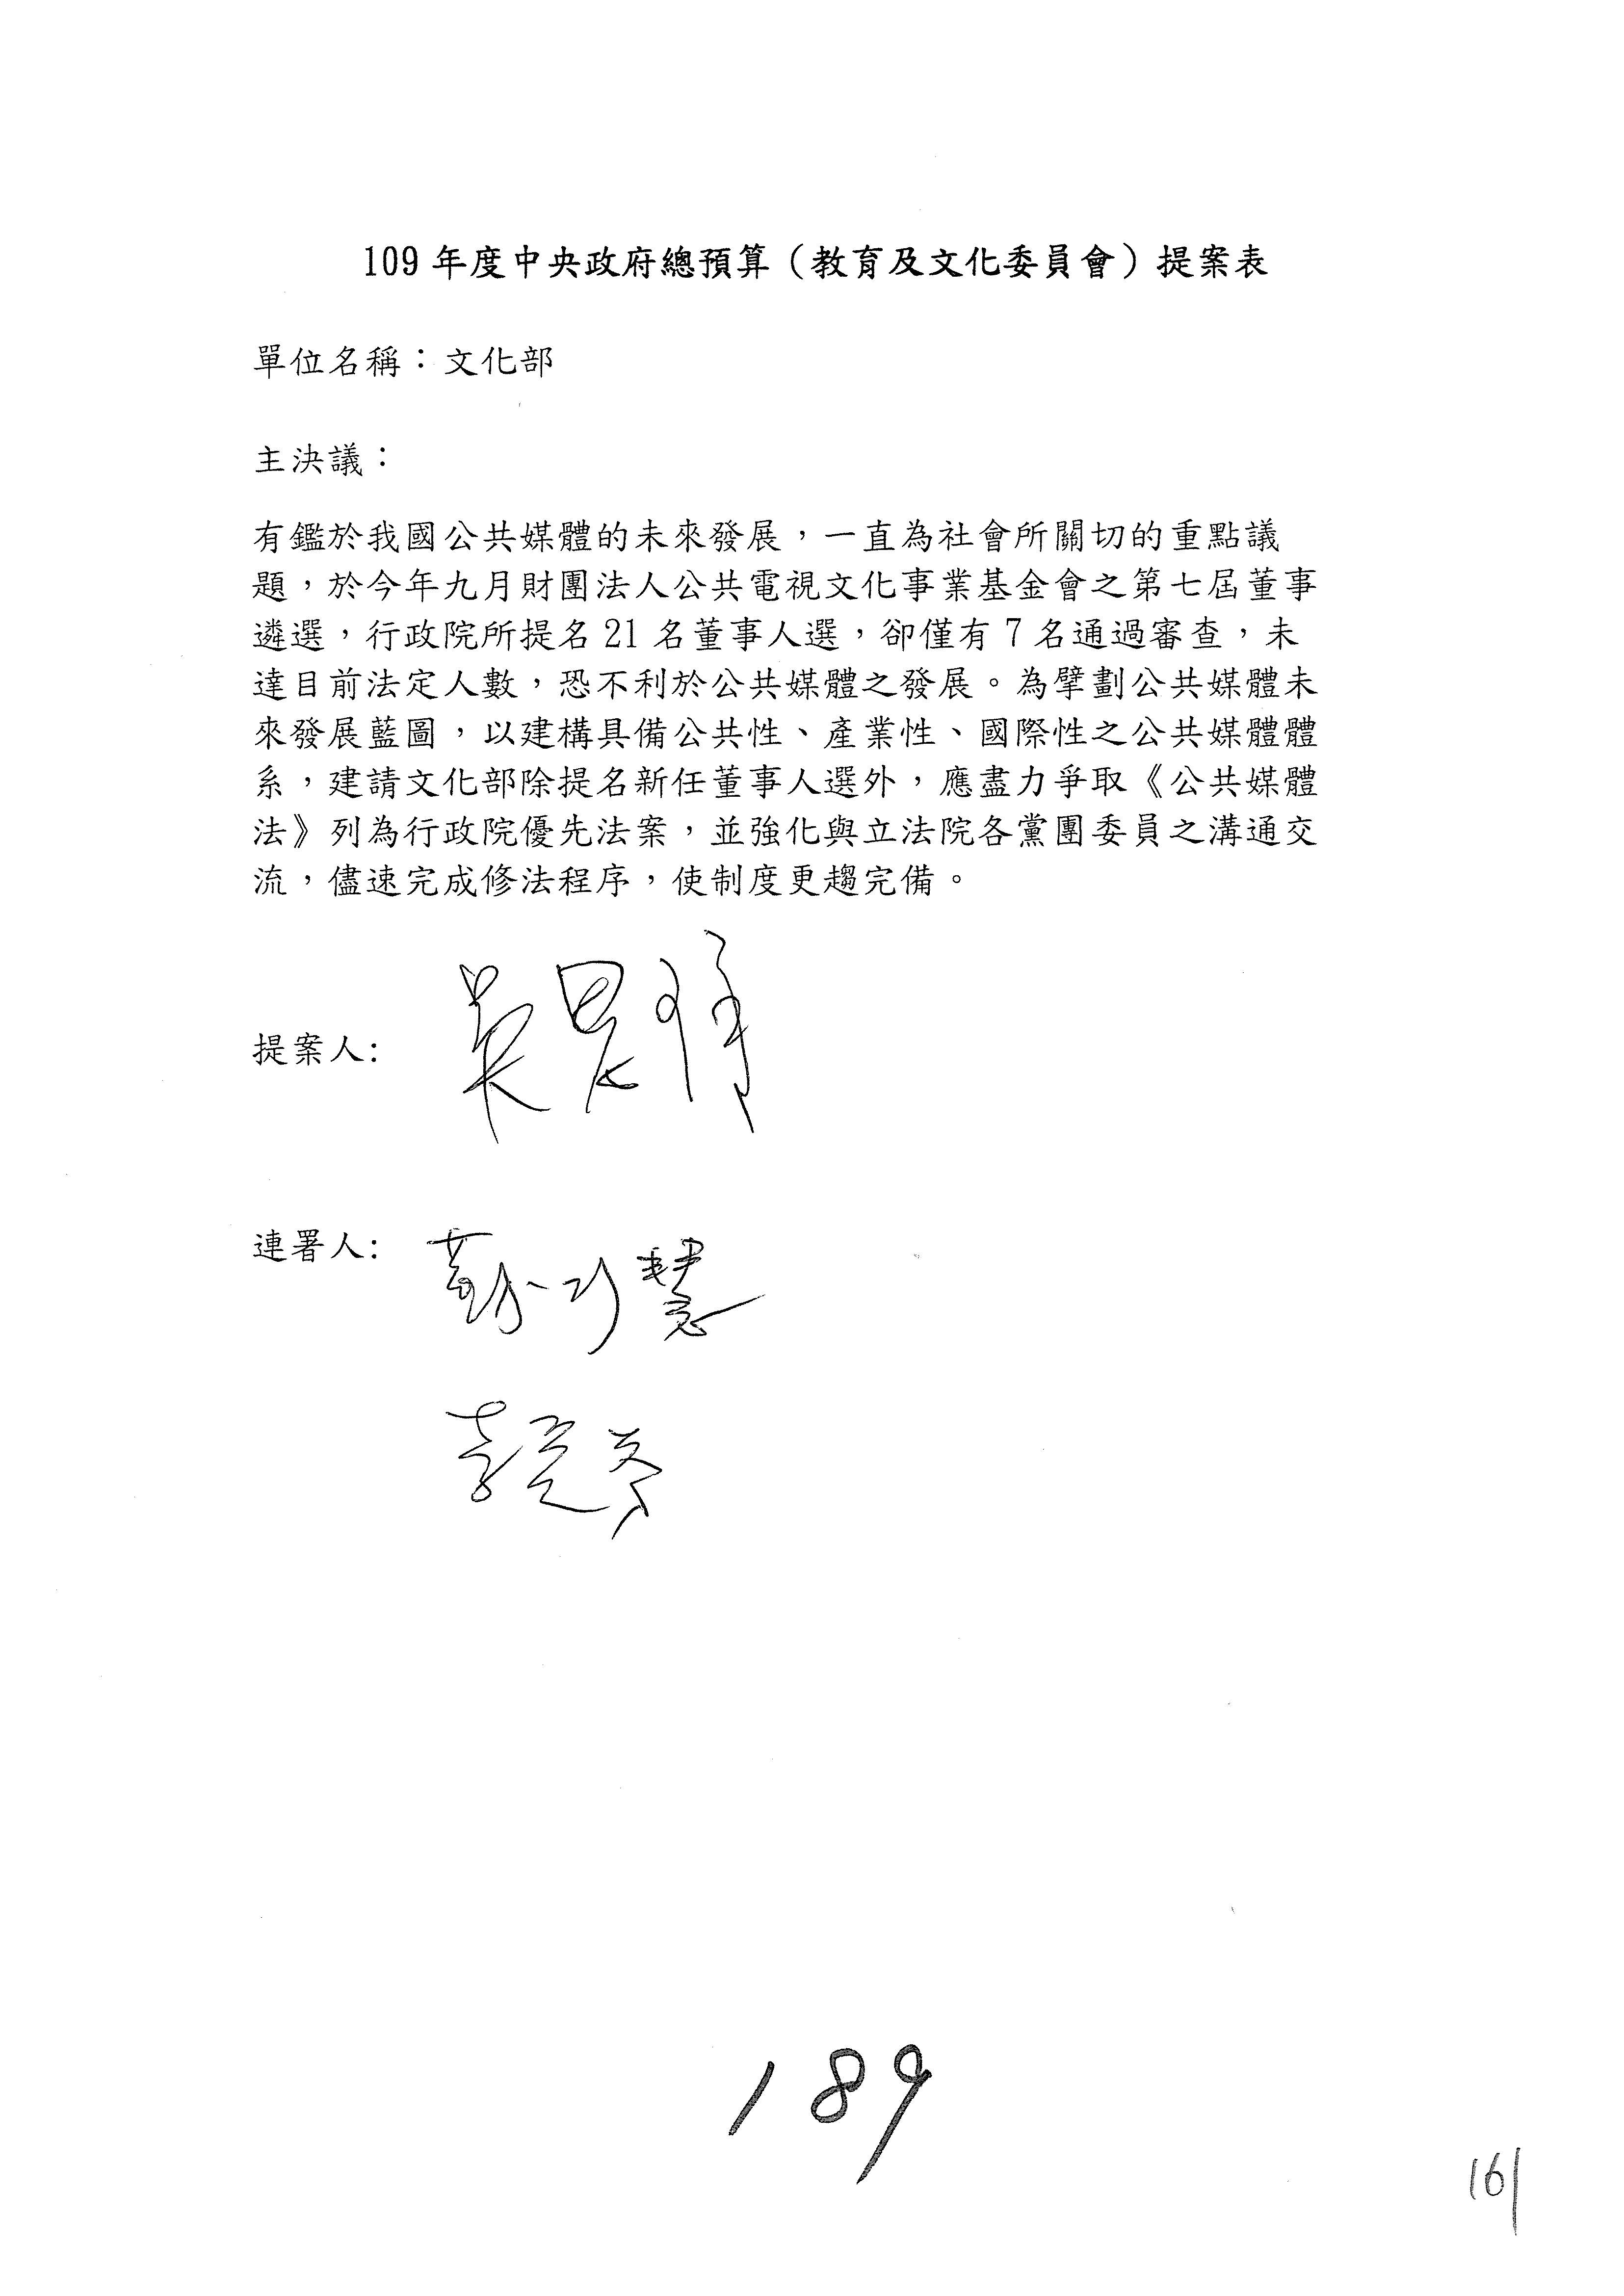 109 年度中央政府總預算（教育及文化委員會）提案表
單位名稱：文化部
主決議：
有鑑於我國公共媒體的未來發展，一直為社會所關切的重點議
題，於今年九月財團法人公共電視文化事業基金會之第七屆董事
遴選，行政院所提名 21 名董事人選，卻僅有 7 名通過審查，未
達目前法定人數，恐不利於公共媒體之發展。為擘劃公共媒體未
來發展藍圖，以建構具備公共性、產業性、國際性之公共媒體體
系，建請文化部除提名新任董事人選外，應盡力爭取《公共媒體
法》列為行政院優先法案，並強化與立法院各黨團委員之溝通交
流，儘速完成修法程序，使制度更趨完備。
提案人:
連署人: 蘇巧慧
189
161